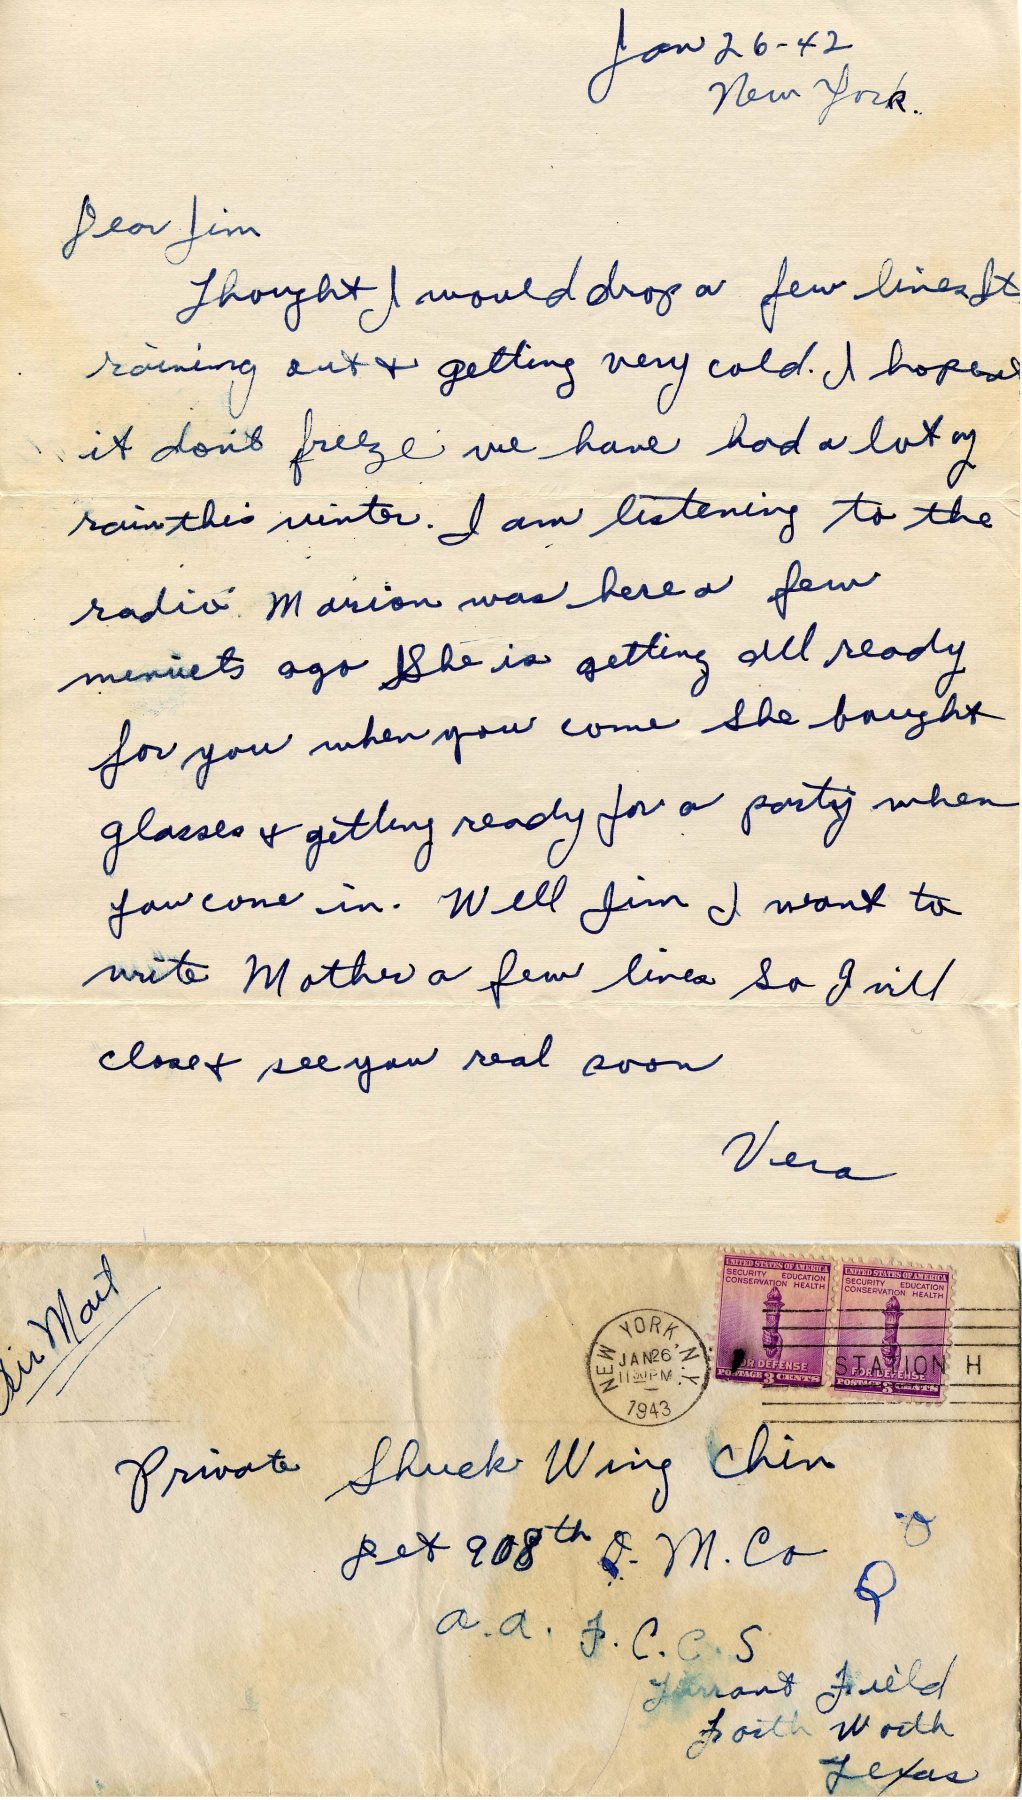 Jan 26-42
New York.
Dear Jim
Thought I would drop a few lines It
raining out & getting very cold. I hope
it don't freeze we have had a lot of
rain this winter. I am listening to the
radio. Marion was here a few
menuets ago She is getting all ready
for you when you come She bought
glasses & getting ready for a party when
you come in. Well Jim I want to
write Mother a few lines So I will
close & see you real soon
Vera
Air Mail
UNITED STATES OF AMERICA
SECURITY EDUCATION
CONSERVATION HEALTH
FOR DEFENSE
POSTAGE 3 CENTS
UNITED STATES OF AMERICA
SECURITY EDUCATION
CONSERVATION HEALTH
FOR DEFENSE
POSTAGE 3 CENTS
NEW YORK, N.Y.
JAN 26
11 30 PM
1943
STATION H
Private Shuck Wing Chin
Det 908th Q. M. Co
Q
A. A. F. C. C. S
Tarrant Field
Forth Worth
Texas